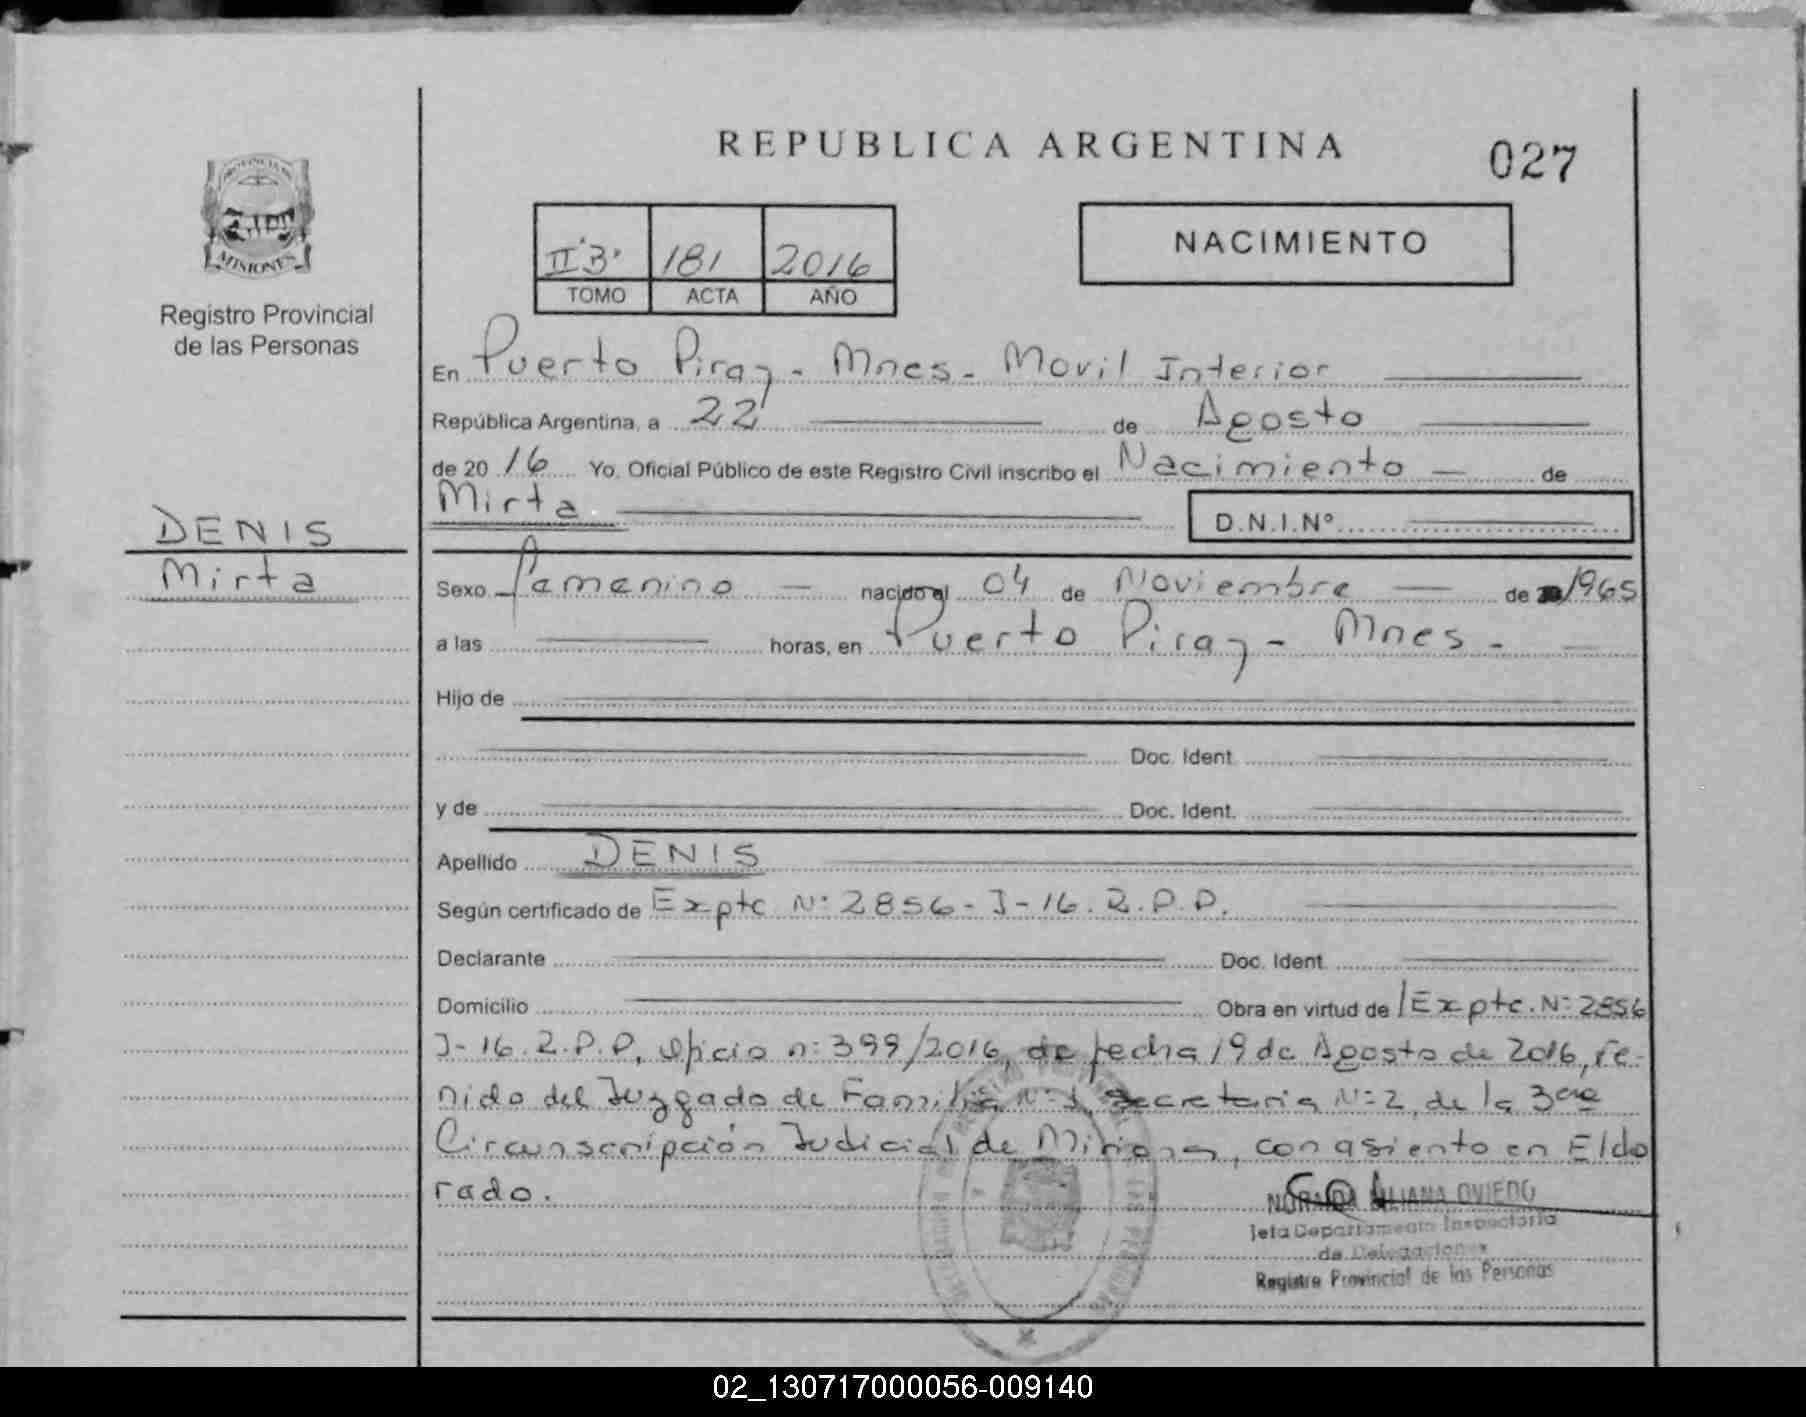 REPUBLICA ARGENTINA
027
PROVINCIA DE
MISIONES
Registro Provincial
de las Personas
II°B° 181 2016
TOMO ACTA AÑO
NACIMIENTO
En Puerto Piray - Mnes - Movil Interior
República Argentina, a 22 de Agosto
de 20 16 Yo, Oficial Público de este Registro Civil inscribo el Nacimiento de
Mirta
D.N.I.Nº
DENIS
Mirta
Sexo Femenino nacido el 04 de Noviembre de 1965
a las horas, en Puerto Piray - Mnes -
Hijo de
Doc. Ident.
y de Doc. Ident.
Apellido DENIS
Según certificado de Expte N: 2856-J-16.R.P.P.
Declarante Doc. Ident.
Domicilio Obra en virtud de Expte. N: 2856
J-16.R.P.P, oficio n: 399/2016, de fecha 19 de Agosto de 2016, re-
nido del Juzgado de Familia N: 1, Secretaria N: 2, de la 3era
Circunscripción Judicial de Misiones, con asiento en Eldo
rado.
LILIANA OVIEDO
Jefa Departamento Inspectoria
de Delegaciones
Registro Provincial de las Personas
02_130717000056-009140